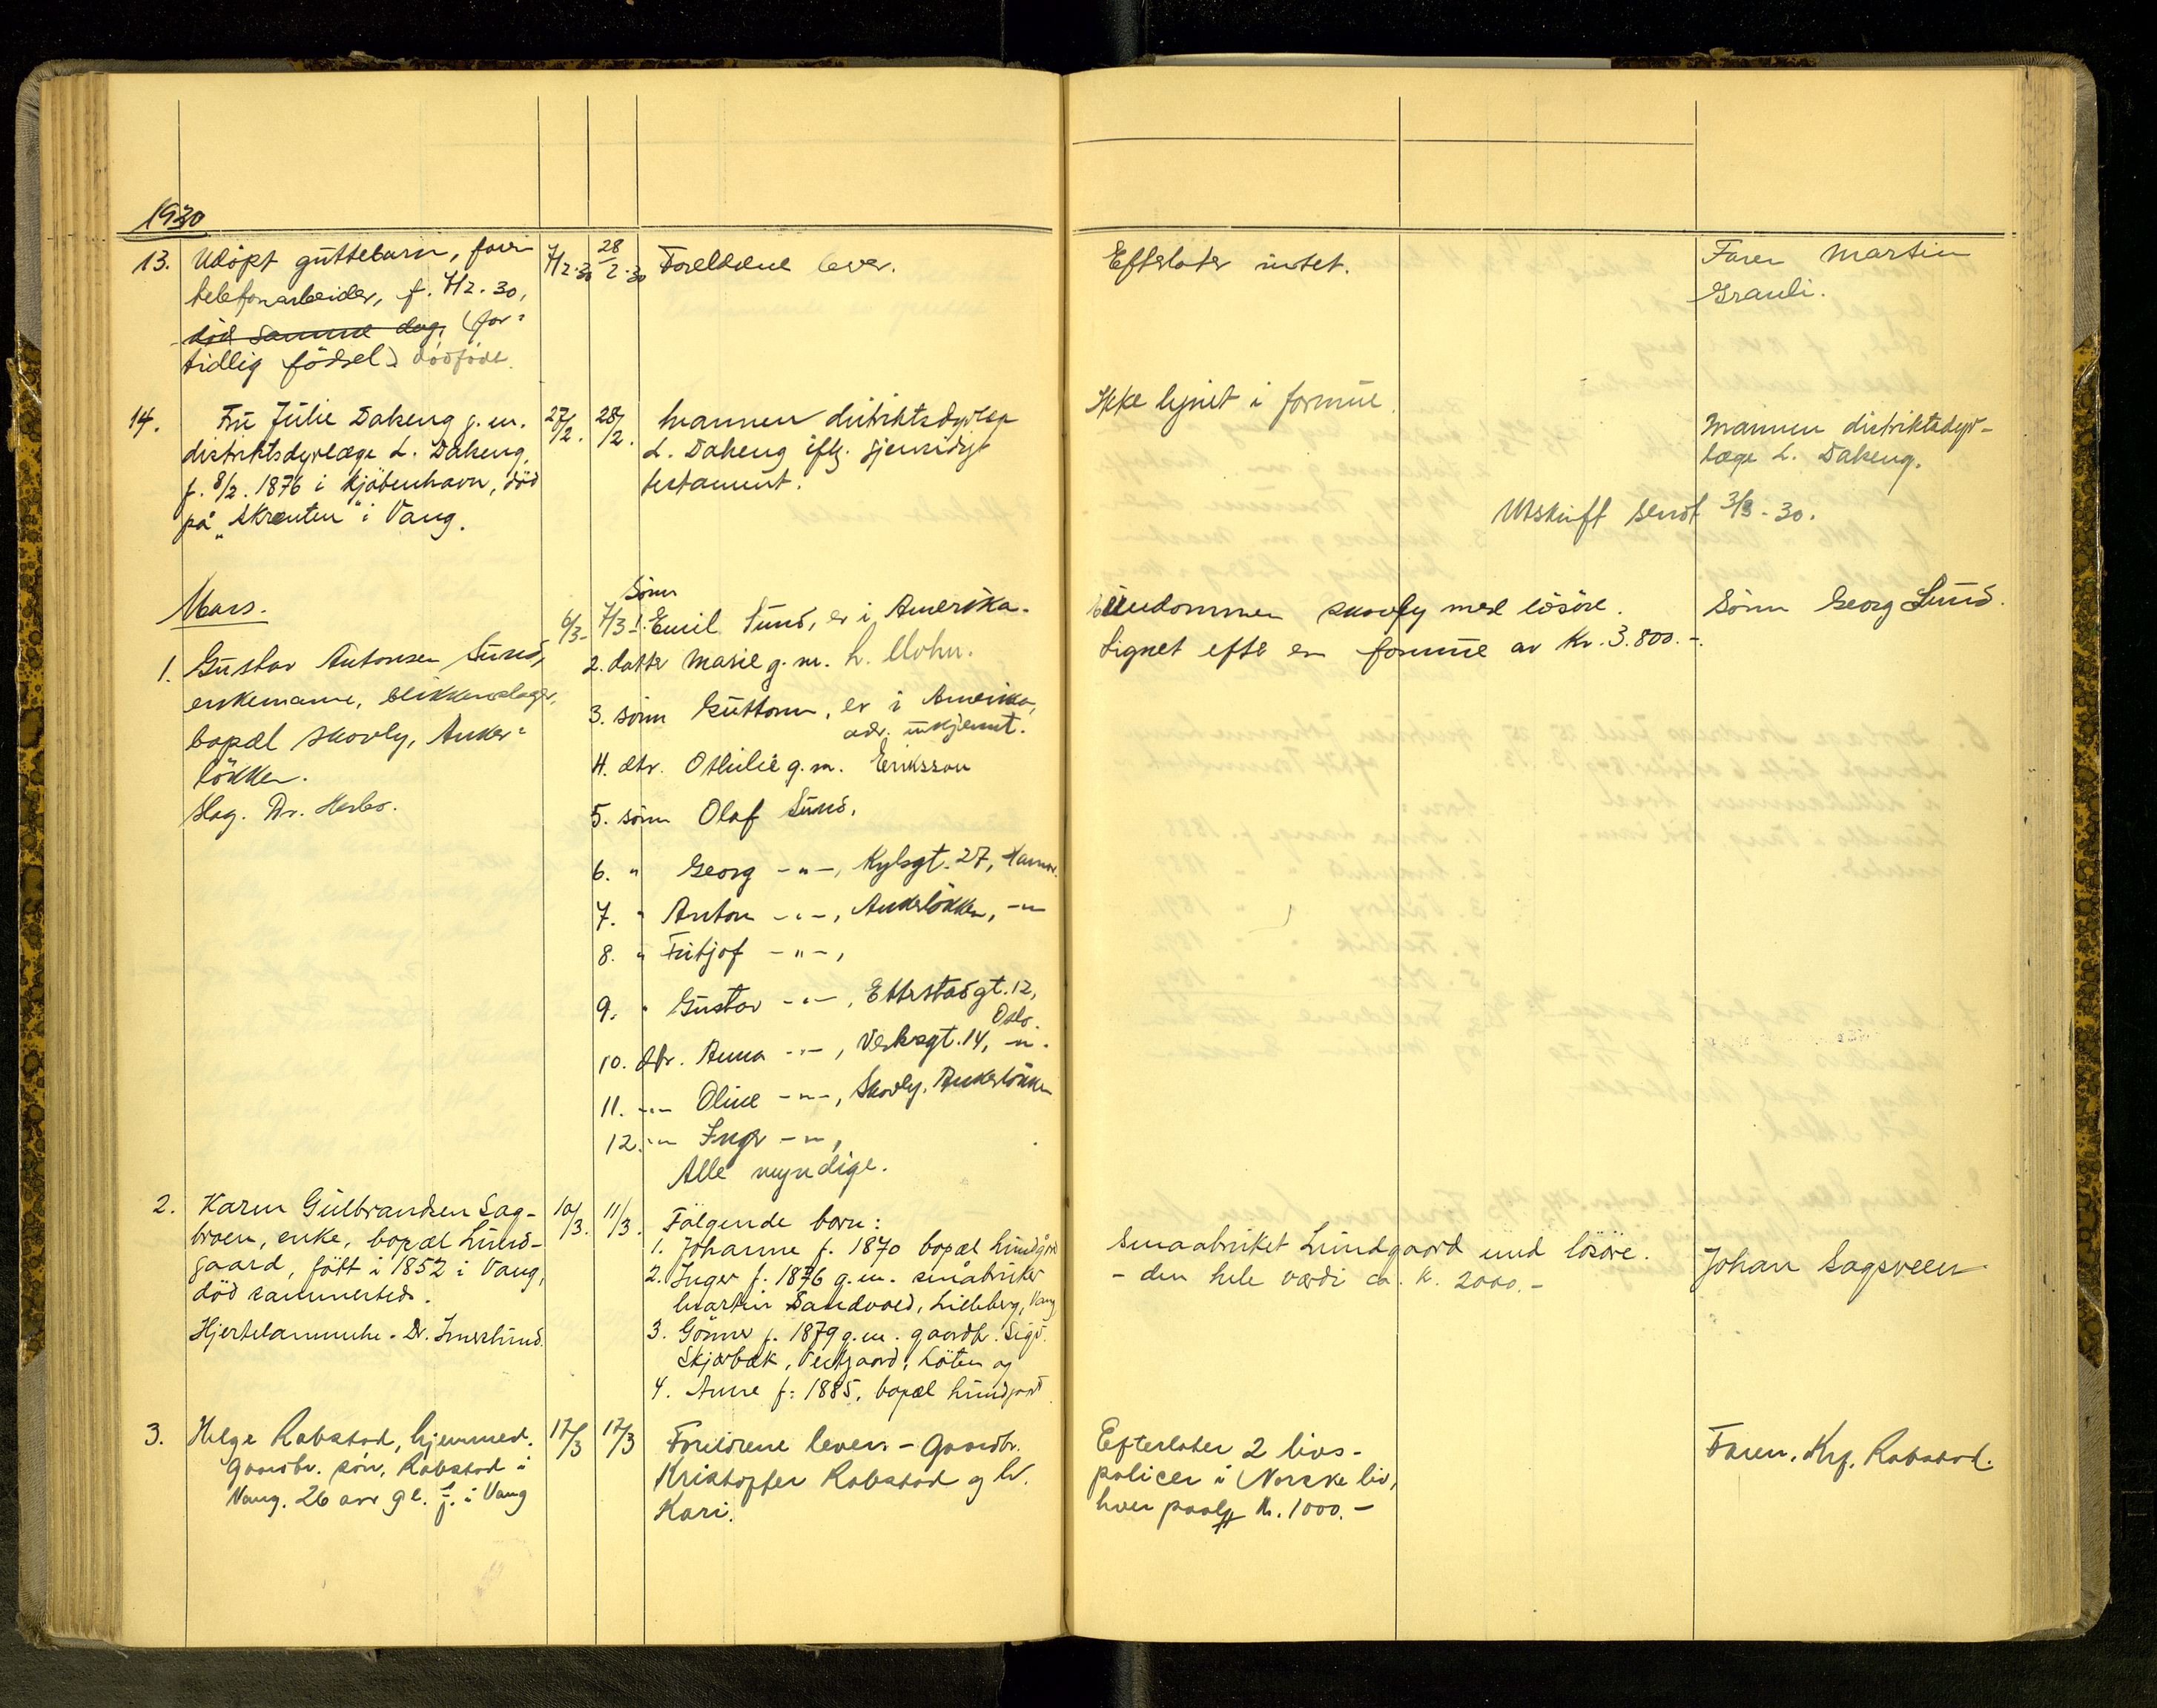 1930
13. Udöpt guttebarn, faren
telefonarbeider, f. 7/2. 30,
död samme dag, (for-
tidlig födsel) dødfødt.
7/2.30
28/2.30
Foreldrene lever.
Efterlater intet.
Faren Martin
Granli.
14. Fru Julie Dakeng g. m.
distriktsdyrlæge L. Dakeng,
f. 8/2. 1876 i Kjöbenhavn, död
på "Skrenten" i Vang.
27/2.
28/2.
Mannen distriktsdyrlæge
L. Dakeng iflg. gjensidigt
testament.
Ikke lignet i formue.
Mannen distriktsdyr-
læge L. Dakeng.
Utskrift sendt 3/3-30.
Mars.
1. Gustav Antonsen Lund,
enkemann, blikkenslager,
bopæl Skovly, Anker-
lökken.
Slag. Dr.
6/3-
7/3-
Sönn
1. Emil Lund, er i Amerika.
2. datter Marie g. m. h. Mohn.
3. sönn Guttorm, er i Amerika,
adr. ukjennt.
4. dtr. Othilie g. m. Eriksson
5. sönn Olaf Lund,
6. " Georg -"-, Kylsgt. 27, Hamar.
7. " Anton -"-, Ankerlökken, -"-
8. " Fritjof -"-,
9. " Gustav -"-, Etterstadgt. 12,
Oslo.
10. dtr. Anna -"-, Verksgt. 14, -"-.
11. -"- Oline -"-, Skovly, Ankerlökken
12. -"- Inga -"-,
Alle myndige.
Eiendommen Skovly med lösöre.
Lignet efter en formue av Kr. 3.800.-.
Sönn Georg Lund.
2. Karen Gulbrandsen Sag-
broen, enke, bopæl Lund-
gaard, född i 1852 i Vang,
död sammesteds.
Hjertelammelse. Dr. Imerslund.
10/3.
11/3.
Fölgende barn:
1. Johanne f. 1870 bopæl Lundgård
2. Inger f. 1876 g. m. småbruker
Martin Sandvold, Lilleberg, Vang
3. Gönner f. 1879 g. m. gaardbr. Sigv.
Skjærbæk, Vestgaard, Löten og
4. Anne f. 1885, bopæl Lundgaard
Smaabruket Lundgaard med lösöre.
- den hele værdi ca. K. 2000.-
Johan Sagsveen
3. Helge Rabstad, hjemmev.
gaardbr. sön, Rabstad i
Vang. 26 aar gl. f. i Vang
17/3
17/3
Foreldrene lever - Gaardbr.
Kristoffer Rabstad og h.
Kari.
Efterlater 2 livs-
policer i Norske liv,
hver paalydende K. 1000.-
Faren, Krf. Rabstad.